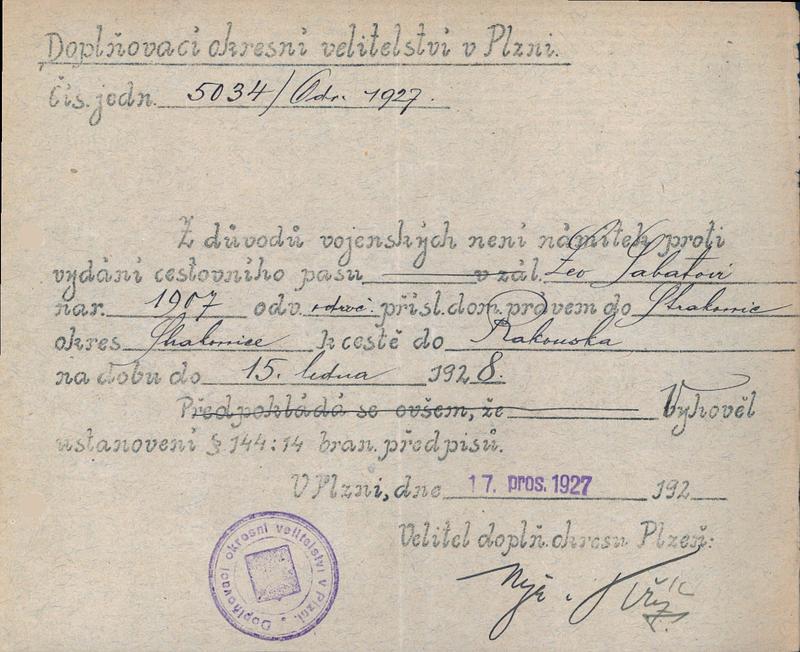 Doplňovací okresní velitelství v Plzni.
Čís. jedn. 5034/Odv. 1927.
Z důvodů vojenských není námitek proti
vydání cestovního pasu v zál. Leo Sabatovi
nar. 1907 odv. přísl. dom. právem do Strakonic
okres Strakonice k cestě do Rakouska
na dobu do 15. ledna 1928.
Předpokládá se ovšem, že Vyhověl
ustanovení § 144:14 bran. předpisů.
V Plzni, dne 17. pros. 1927 192
Velitel doplň. okresu Plzeň:
Doplňovací okresní velitelství v Plzni.